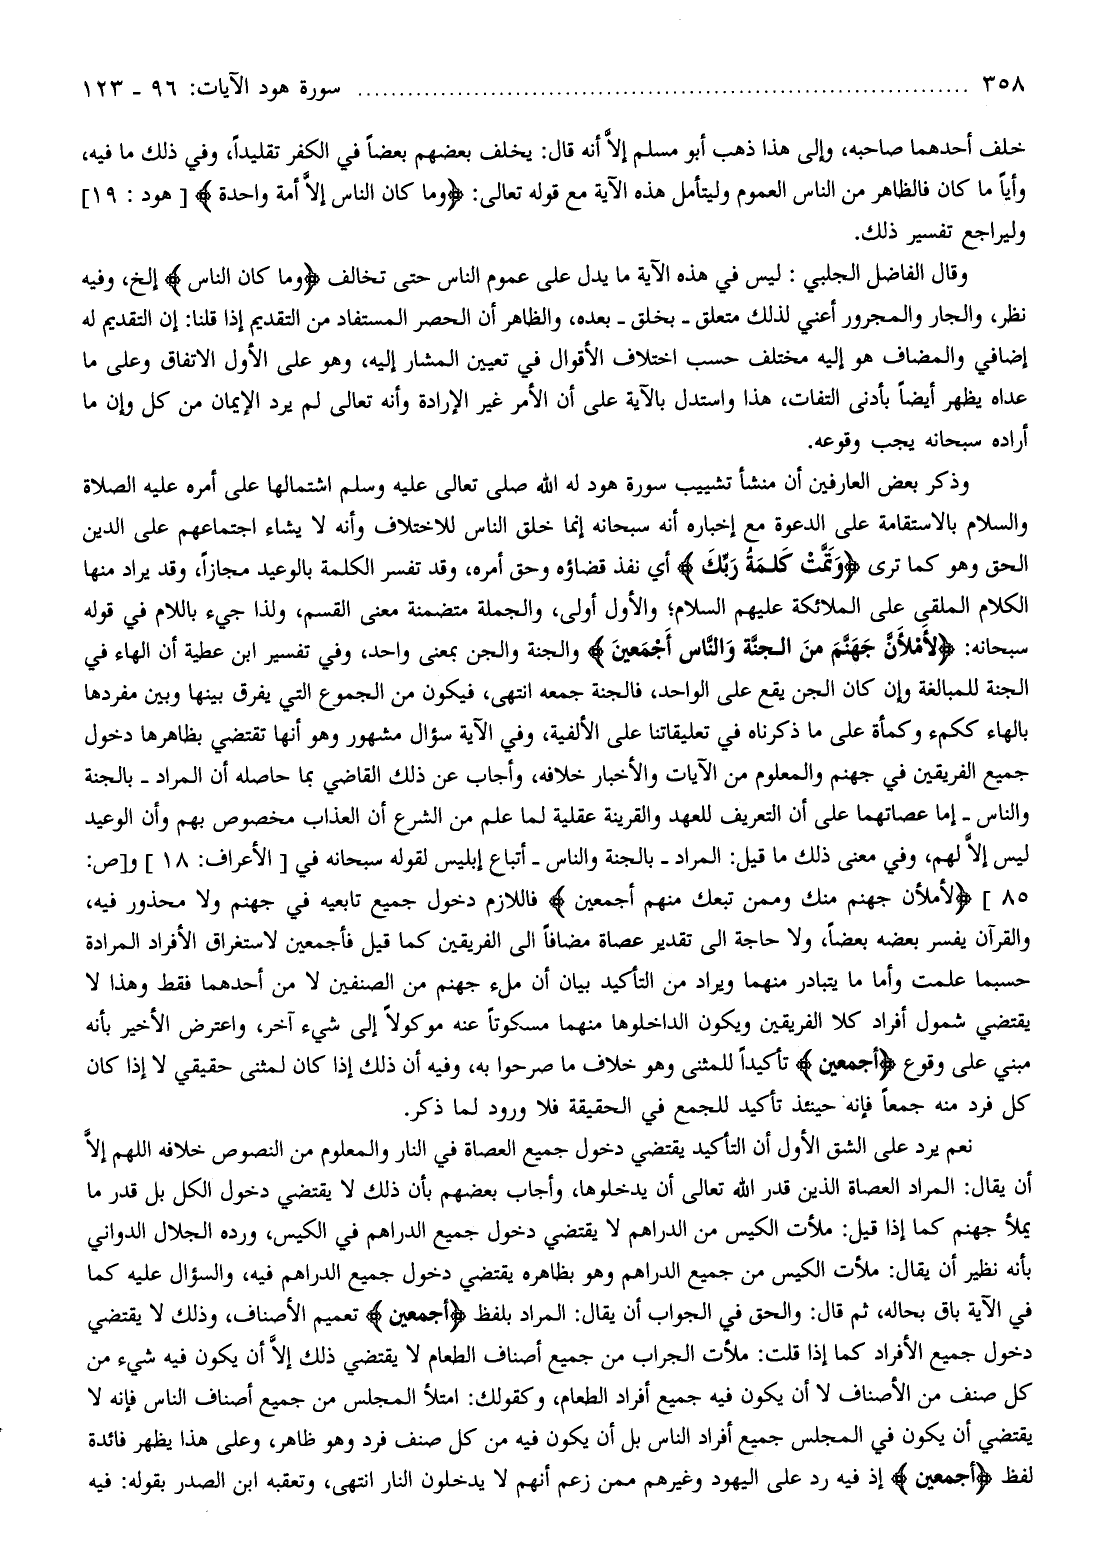 ٣٥٨ ........................................................................... سورة هود الآيات: ٩٦ ـ ١٢٣
خلف أحدهما صاحبه، وإلى هذا ذهب أبو مسلم إلاَّ أنه قال: يخلف بعضهم بعضاً في الكفر تقليداً، وفي ذلك ما فيه،
وأياً ما كان فالظاهر من الناس العموم وليتأمل هذه الآية مع قوله تعالى: ﴿وما كان الناس إلاَّ أمة واحدة﴾ [هود : ١٩]
وليراجع تفسير ذلك.
وقال الفاضل الجلبي : ليس في هذه الآية ما يدل على عموم الناس حتى تخالف ﴿وما كان الناس﴾ إلخ، وفيه
نظر، والجار والمجرور أعني لذلك متعلق ـ بخلق ـ بعده، والظاهر أن الحصر المستفاد من التقديم إذا قلنا: إن التقديم له
إضافي والمضاف هو إليه مختلف حسب اختلاف الأقوال في تعيين المشار إليه، وهو على الأول الاتفاق وعلى ما
عداه يظهر أيضاً بأدنى التفات، هذا واستدل بالآية على أن الأمر غير الإرادة وأنه تعالى لم يرد الإيمان من كل وإن ما
أراده سبحانه يجب وقوعه.
وذكر بعض العارفين أن منشأ تشييب سورة هود له الله صلى تعالى عليه وسلم اشتمالها على أمره عليه الصلاة
والسلام بالاستقامة على الدعوة مع إخباره أنه سبحانه إنما خلق الناس للاختلاف وأنه لا يشاء اجتماعهم على الدين
الحق وهو كما ترى ﴿وَتَمَّتْ كَلمَةُ رَبِّكَ﴾ أي نفذ قضاؤه وحق أمره، وقد تفسر الكلمة بالوعيد مجازاً، وقد يراد منها
الكلام الملقى على الملائكة عليهم السلام؛ والأول أولى، والجملة متضمنة معنى القسم، ولذا جيء باللام في قوله
سبحانه: ﴿لأَمْلأَنَّ جَهَنَّمَ منَ الجنَّة وَالنَّاس أَجْمَعينَ﴾ والجنة والجن بمعنى واحد، وفي تفسير ابن عطية أن الهاء في
الجنة للمبالغة وإن كان الجن يقع على الواحد، فالجنة جمعه انتهى، فيكون من الجموع التي يفرق بينها وبين مفردها
بالهاء ككمء وكمأة على ما ذكرناه في تعليقاتنا على الألفية، وفي الآية سؤال مشهور وهو أنها تقتضي بظاهرها دخول
جميع الفريقين في جهنم والمعلوم من الآيات والأخبار خلافه، وأجاب عن ذلك القاضي بما حاصله أن المراد ـ بالجنة
والناس ـ إما عصاتهما على أن التعريف للعهد والقرينة عقلية لما علم من الشرع أن العذاب مخصوص بهم وأن الوعيد
ليس إلاَّ لهم، وفي معنى ذلك ما قيل: المراد ـ بالجنة والناس ـ أتباع إبليس لقوله سبحانه في [الأعراف: ١٨] و[ص:
٨٥] ﴿لأملأن جهنم منك وممن تبعك منهم أجمعين﴾ فاللازم دخول جميع تابعيه في جهنم ولا محذور فيه،
والقرآن يفسر بعضه بعضاً، ولا حاجة الى تقدير عصاة مضافاً الى الفريقين كما قيل فأجمعين لاستغراق الأفراد المرادة
حسبما علمت وأما ما يتبادر منهما ويراد من التأكيد بيان أن ملء جهنم من الصنفين لا من أحدهما فقط وهذا لا
يقتضي شمول أفراد كلا الفريقين ويكون الداخلوها منهما مسكوتاً عنه موكولاً إلى شيء آخر، واعترض الأخير بأنه
مبني على وقوع ﴿أجمعين﴾ تأكيداً للمثنى وهو خلاف ما صرحوا به، وفيه أن ذلك إذا كان لمثنى حقيقي لا إذا كان
كل فرد منه جمعاً فإنه حينئذ تأكيد للجمع في الحقيقة فلا ورود لما ذكر.
نعم يرد على الشق الأول أن التأكيد يقتضي دخول جميع العصاة في النار والمعلوم من النصوص خلافه اللهم إلاَّ
أن يقال: المراد العصاة الذين قدر الله تعالى أن يدخلوها، وأجاب بعضهم بأن ذلك لا يقتضي دخول الكل بل قدر ما
يملأ جهنم كما إذا قيل: ملأت الكيس من الدراهم لا يقتضي دخول جميع الدراهم في الكيس، ورده الجلال الدواني
بأنه نظير أن يقال: ملأت الكيس من جميع الدراهم وهو بظاهره يقتضي دخول جميع الدراهم فيه، والسؤال عليه كما
في الآية باق بحاله، ثم قال: والحق في الجواب أن يقال: المراد بلفظ ﴿أجمعين﴾ تعميم الأصناف، وذلك لا يقتضي
دخول جميع الأفراد كما إذا قلت: ملأت الجراب من جميع أصناف الطعام لا يقتضي ذلك إلاَّ أن يكون فيه شيء من
كل صنف من الأصناف لا أن يكون فيه جميع أفراد الطعام، وكقولك: امتلأ المجلس من جميع أصناف الناس فإنه لا
يقتضي أن يكون في المجلس جميع أفراد الناس بل أن يكون فيه من كل صنف فرد وهو ظاهر، وعلى هذا يظهر فائدة
لفظ ﴿أجمعين﴾ إذ فيه رد على اليهود وغيرهم ممن زعم أنهم لا يدخلون النار انتهى، وتعقبه ابن الصدر بقوله: فيه